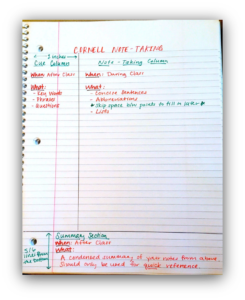 CORNELL NOTE-TAKING
2 inches
Cue Column
Note-Taking Column
When: After Class
When: During Class
What:
- Key Words
- Phrases
- Questions
What:
- Concise Sentences
- Abbreviations
* Skip space b/w points to fill in later *
- Lists
Summary Section
When: After Class
What:
A condensed summary of your notes from above.
Should may be used for quick reference.
5/6
lines from
the bottom